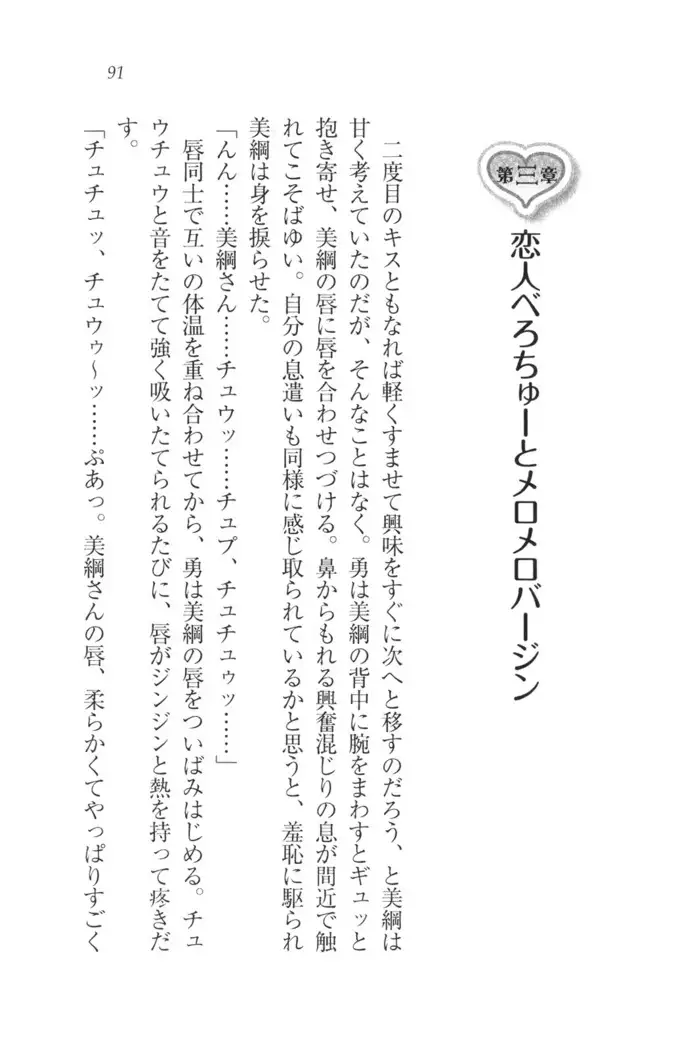 91
第三章
恋人べろちゅーとメロメロバージン
二度目のキスともなれば軽くすませて興味をすぐに次へと移すのだろう、と美綱は
甘く考えていたのだが、そんなことはなく。勇は美綱の背中に腕をまわすとギュッと
抱き寄せ、美綱の唇に唇を合わせつづける。鼻からもれる興奮混じりの息が間近で触
れてこそばゆい。自分の息遣いも同様に感じ取られているかと思うと、羞恥に駆られ
美綱は身を捩らせた。
「んん……美綱さん……チュウッ……チュプ、チュチュゥッ……」
唇同士で互いの体温を重ね合わせてから、勇は美綱の唇をついばみはじめる。チュ
ウチュウと音をたてて強く吸いたてられるたびに、唇がジンジンと熱を持って疼きだ
す。
「チュチュッ、チュウゥ～ッ……ぷあっ。美綱さんの唇、柔らかくてやっぱりすごく